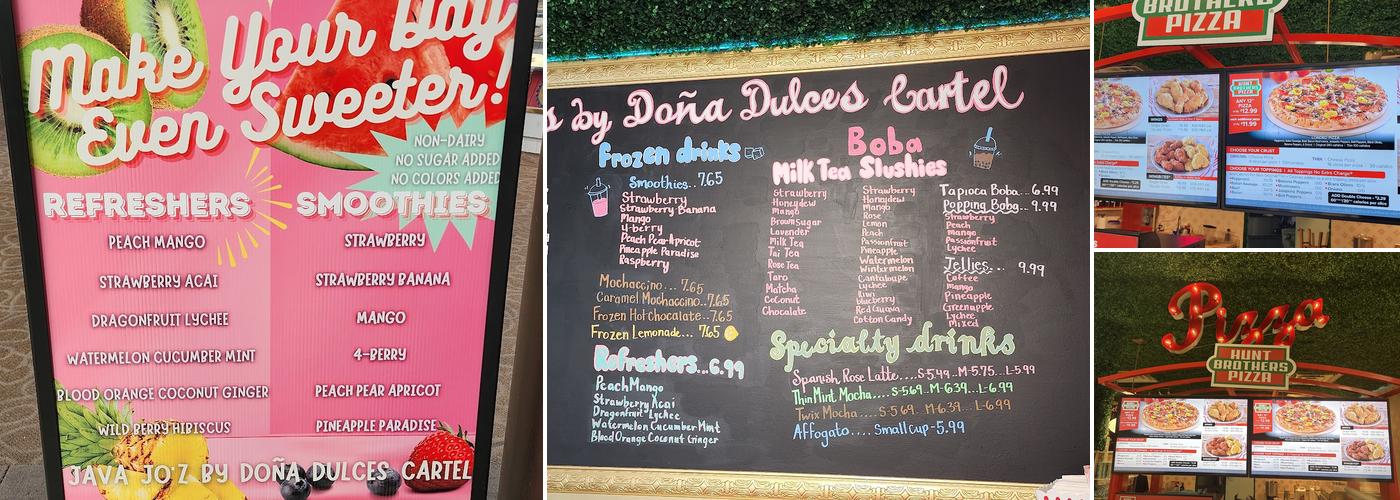 Make Your Day
Even Sweeter!
NON-DAIRY
NO SUGAR ADDED
NO COLORS ADDED
REFRESHERS
PEACH MANGO
STRAWBERRY ACAI
DRAGONFRUIT LYCHEE
WATERMELON CUCUMBER MINT
BLOOD ORANGE COCONUT GINGER
WILD BERRY HIBISCUS
SMOOTHIES
STRAWBERRY
STRAWBERRY BANANA
MANGO
4-BERRY
PEACH PEAR APRICOT
PINEAPPLE PARADISE
JAVA JO'Z BY DOÑA DULCES CARTEL
s by Doña Dulces Cartel
Frozen drinks
Smoothies.. 7.65
Strawberry
Strawberry Banana
Mango
4-berry
Peach Pear Apricot
Pineapple Paradise
Raspberry
Mochaccino... 7.65
Caramel Mochaccino..7.65
Frozen Hot Chocolate..7.65
Frozen Lemonade.. 7.65
Refreshers...6.99
Peach Mango
Strawberry Acai
Dragonfruit Lychee
Watermelon Cucumber Mint
Blood Orange Coconut Ginger
Boba
Milk Tea Slushies
Strawberry
Honeydew
Mango
Brown sugar
Lavender
Milk Tea
Tai Tea
Rose Tea
Taro
Matcha
Coconut
Chocolate
Strawberry
Honeydew
Mango
Rose
Lemon
Peach
Passionfruit
Pineapple
Watermelon
Wintermelon
Cantaloupe
Lychee
Kiwi
blueberry
Red Guava
Cotton Candy
Tapioca Boba... 6.99
Popping Boba... 9.99
Strawberry
Peach
mango
Passionfruit
Lychee
Jellies... 9.99
Coffee
mango
Pineapple
Greenapple
Lychee
Mixed
Specialty drinks
Spanish Rose Latte....S-5.49.. M-5.75... L-5.99
Thin Mint Mocha....S-5.69.. M-6.39... L-6.99
Twix Mocha....S-5.69.. M-6.39... L-6.99
Affogato.... Small cup-5.99
BROTHERS
PIZZA
WINGS
HUNT
BROTHERS
PIZZA
ANY 12"
PIZZA
$12.99
$11.99
LOADED PIZZA
CHOOSE YOUR CRUST
CHOOSE YOUR TOPPINGS | All Toppings No Extra Charge*
ADD Double Cheese
Pizza
HUNT
BROTHERS
PIZZA